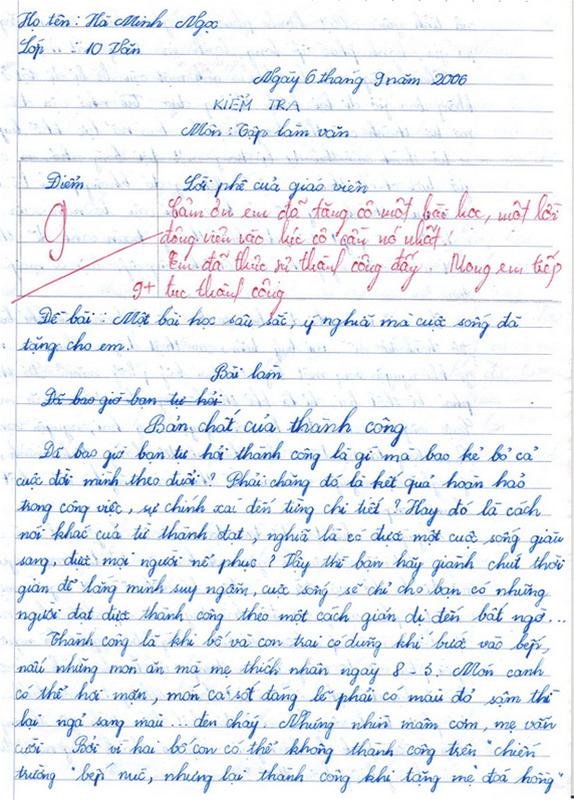 Họ tên : Hà Minh Ngọc
Lớp : 10 Văn
Ngày 6 tháng 9 năm 2006
KIỂM TRA
Môn : Tập làm văn
Điểm
Lời phê của giáo viên
9
Cảm ơn em đã tặng cô một bài học, một lời
động viên vào lúc cô cần nó nhất!
Em đã thực sự thành công đấy. Mong em tiếp
9+ tục thành công
Đề bài : Một bài học sâu sắc, ý nghĩa mà cuộc sống đã
tặng cho em.
Bài làm
Đã bao giờ bạn tự hỏi
Bản chất của thành công
Đã bao giờ bạn tự hỏi thành công là gì mà bao kẻ bỏ cả
cuộc đời mình theo đuổi ? Phải chăng đó là kết quả hoàn hảo
trong công việc, sự chính xác đến từng chi tiết ? Hay đó là cách
nói khác của từ thành đạt, nghĩa là có được một cuộc sống giàu
sang, được mọi người nể phục ? Vậy thì bạn hãy giành chút thời
gian để lặng mình suy ngẫm, cuộc sống sẽ chỉ cho bạn có những
người đạt được thành công theo một cách giản dị đến bất ngờ...
Thành công là khi bố và con trai có dũng khí bước vào bếp,
nấu những món ăn mà mẹ thích nhân ngày 8 - 3. Món canh
có thể hơi mặn, món cá sốt đáng lẽ phải có màu đỏ sậm thì
lại ngả sang màu ... đen cháy. Nhưng nhìn mâm cơm, mẹ vẫn
cười. Bởi vì hai bố con có thể không thành công trên "chiến
trường" bếp núc, nhưng lại thành công khi tặng mẹ "đoá hồng"